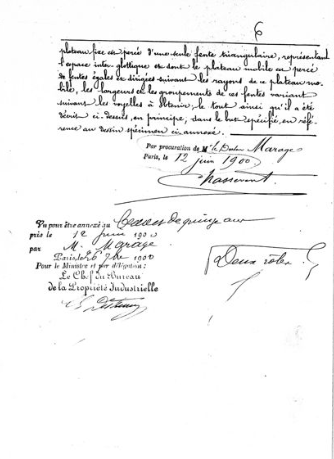 6
plateau fixe est percé d'une seule fente triangulaire, représentant
l'espace inter glottique et dont le plateau mobile est percé
de fentes égales et dirigées suivant les rayons de ce plateau mo-
bile, les largeurs et les groupements de ces fentes variant
suivant les voyelles à obtenir, le tout ainsi qu'il a été
décrit ci-dessus, en principe, dans le but spécifié, en réfé-
rence au dessin spécimen ci-annexé.
Par procuration de Mr le Docteur Marage
Paris, le 12 juin 1900
Chassevent
Vu pour être annexé au Brevet de quinze ans
pris le 12 juin 1900
par M. Marage
Paris, le 26 1900
Pour le Ministre et par délégation:
Le Chef du Bureau
de la Propriété Industrielle
Deux rôles